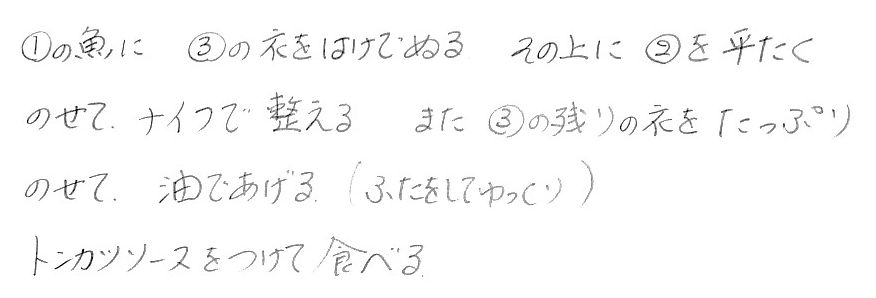 ①の魚に ③の衣をはけでぬる その上に ②を平たく
のせて、ナイフで整える また ③の残りの衣をたっぷり
のせて、油であげる (ふたをしてゆっくり)
トンカツソースをつけて食べる